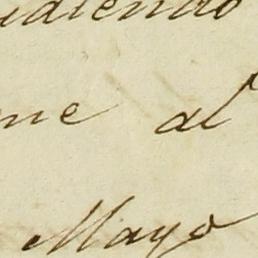 udiendo
me al
Mayo